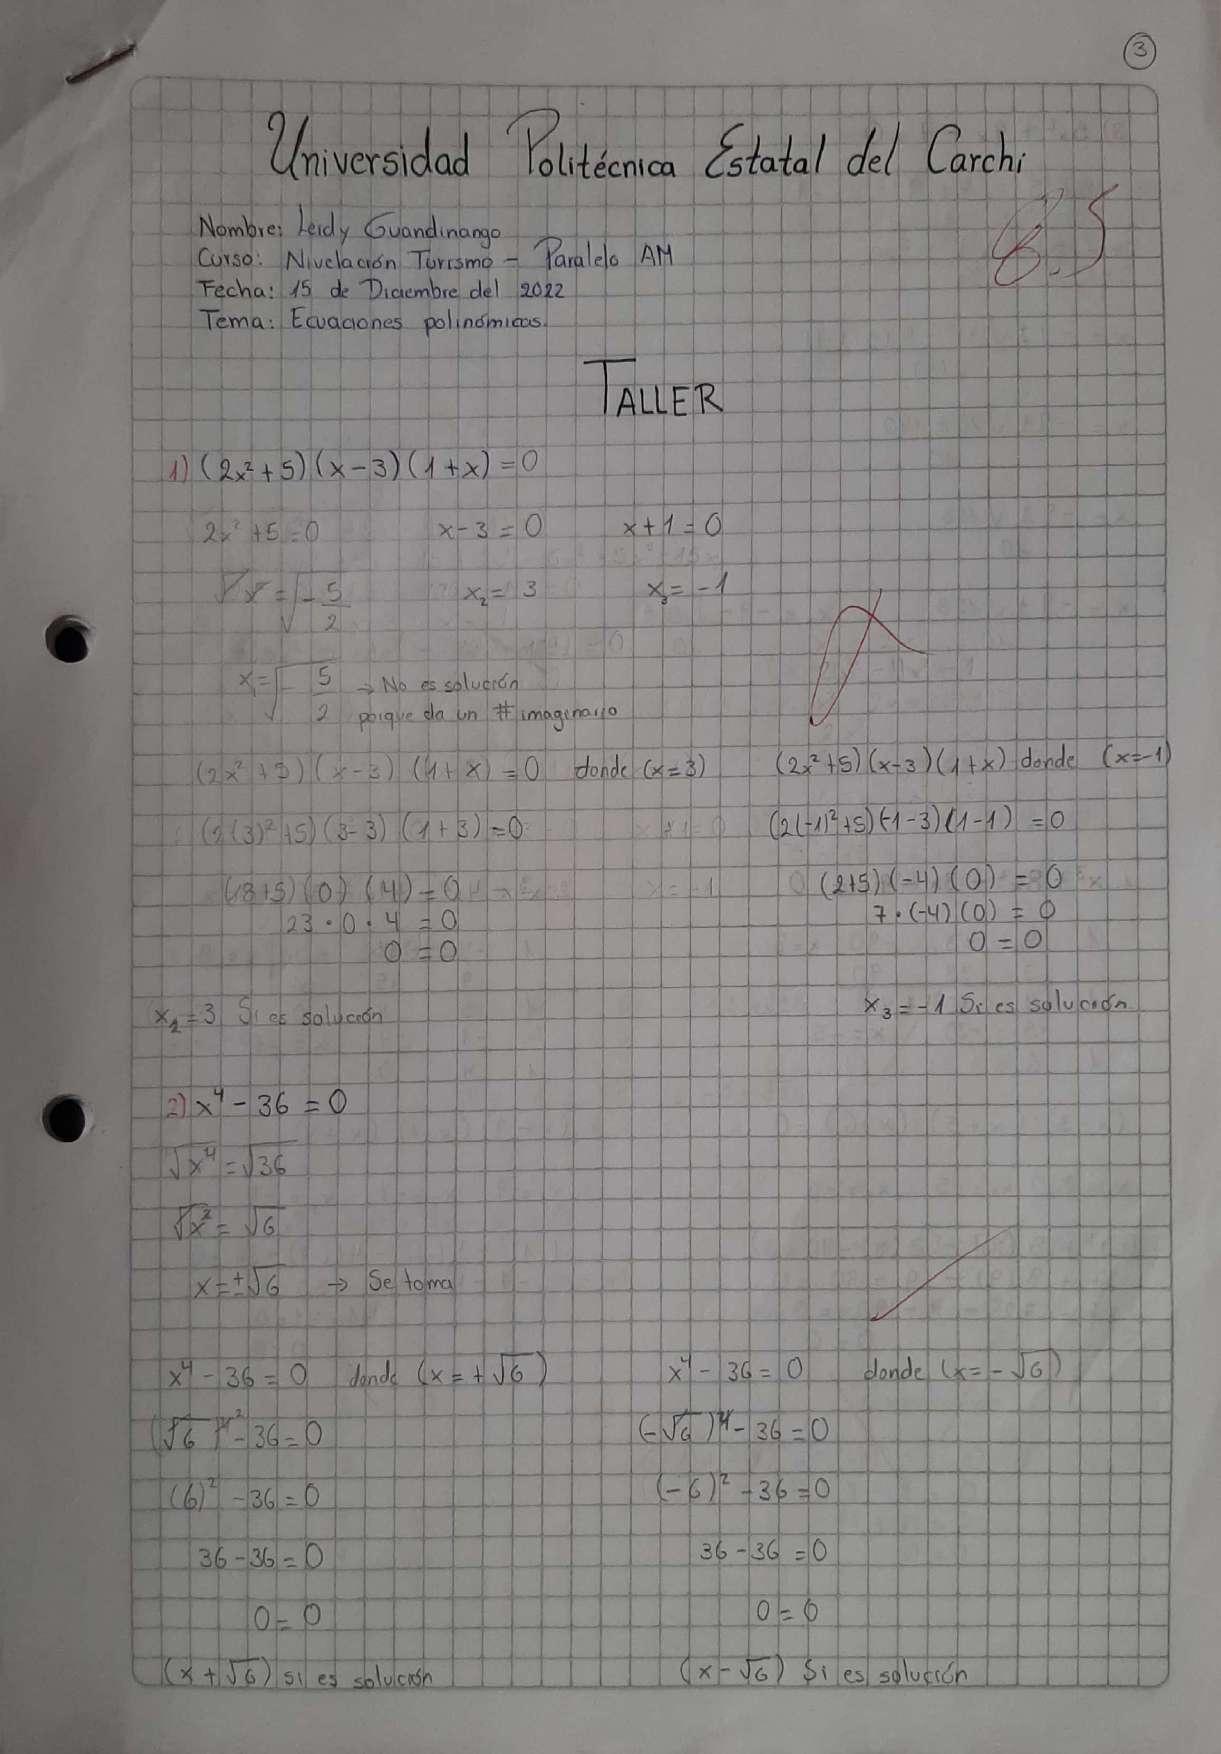 3
Universidad Politécnica Estatal del Carchi
8.5
Nombre: Leidy Guandinango
Curso: Nivelación Turismo - Paralelo AM
Fecha: 15 de Diciembre del 2022
Tema: Ecuaciones polinómicas.
TALLER
1) (2x²+5)(x-3)(1+x)=0
2x²+5=0 x-3=0 x+1=0
√x²=√-5/2 x₂=3 x₃=-1
x₁=√-5/2 → No es solución
porque da un # imaginario
(2x²+5)(x-3)(1+x)=0 donde (x=3) (2x²+5)(x-3)(1+x) donde (x=-1)
(2(3)²+5)(3-3)(1+3)=0 (2(-1)²+5)(-1-3)(1-1)=0
(18+5)(0)(4)=0 (2+5)(-4)(0)=0
23·0·4=0 7·(-4)(0)=0
0=0 0=0
x₂=3 Si es solución x₃=-1 Si es solución
2) x⁴-36=0
√x⁴=√36
√x²=√6
x=±√6 → Se toma
x⁴-36=0 donde (x=+√6) x⁴-36=0 donde (x=-√6)
(√6)⁴²-36=0 (-√6)⁴-36=0
(6)²-36=0 (-6)²-36=0
36-36=0 36-36=0
0=0 0=0
(x+√6) si es solución (x-√6) Si es solución